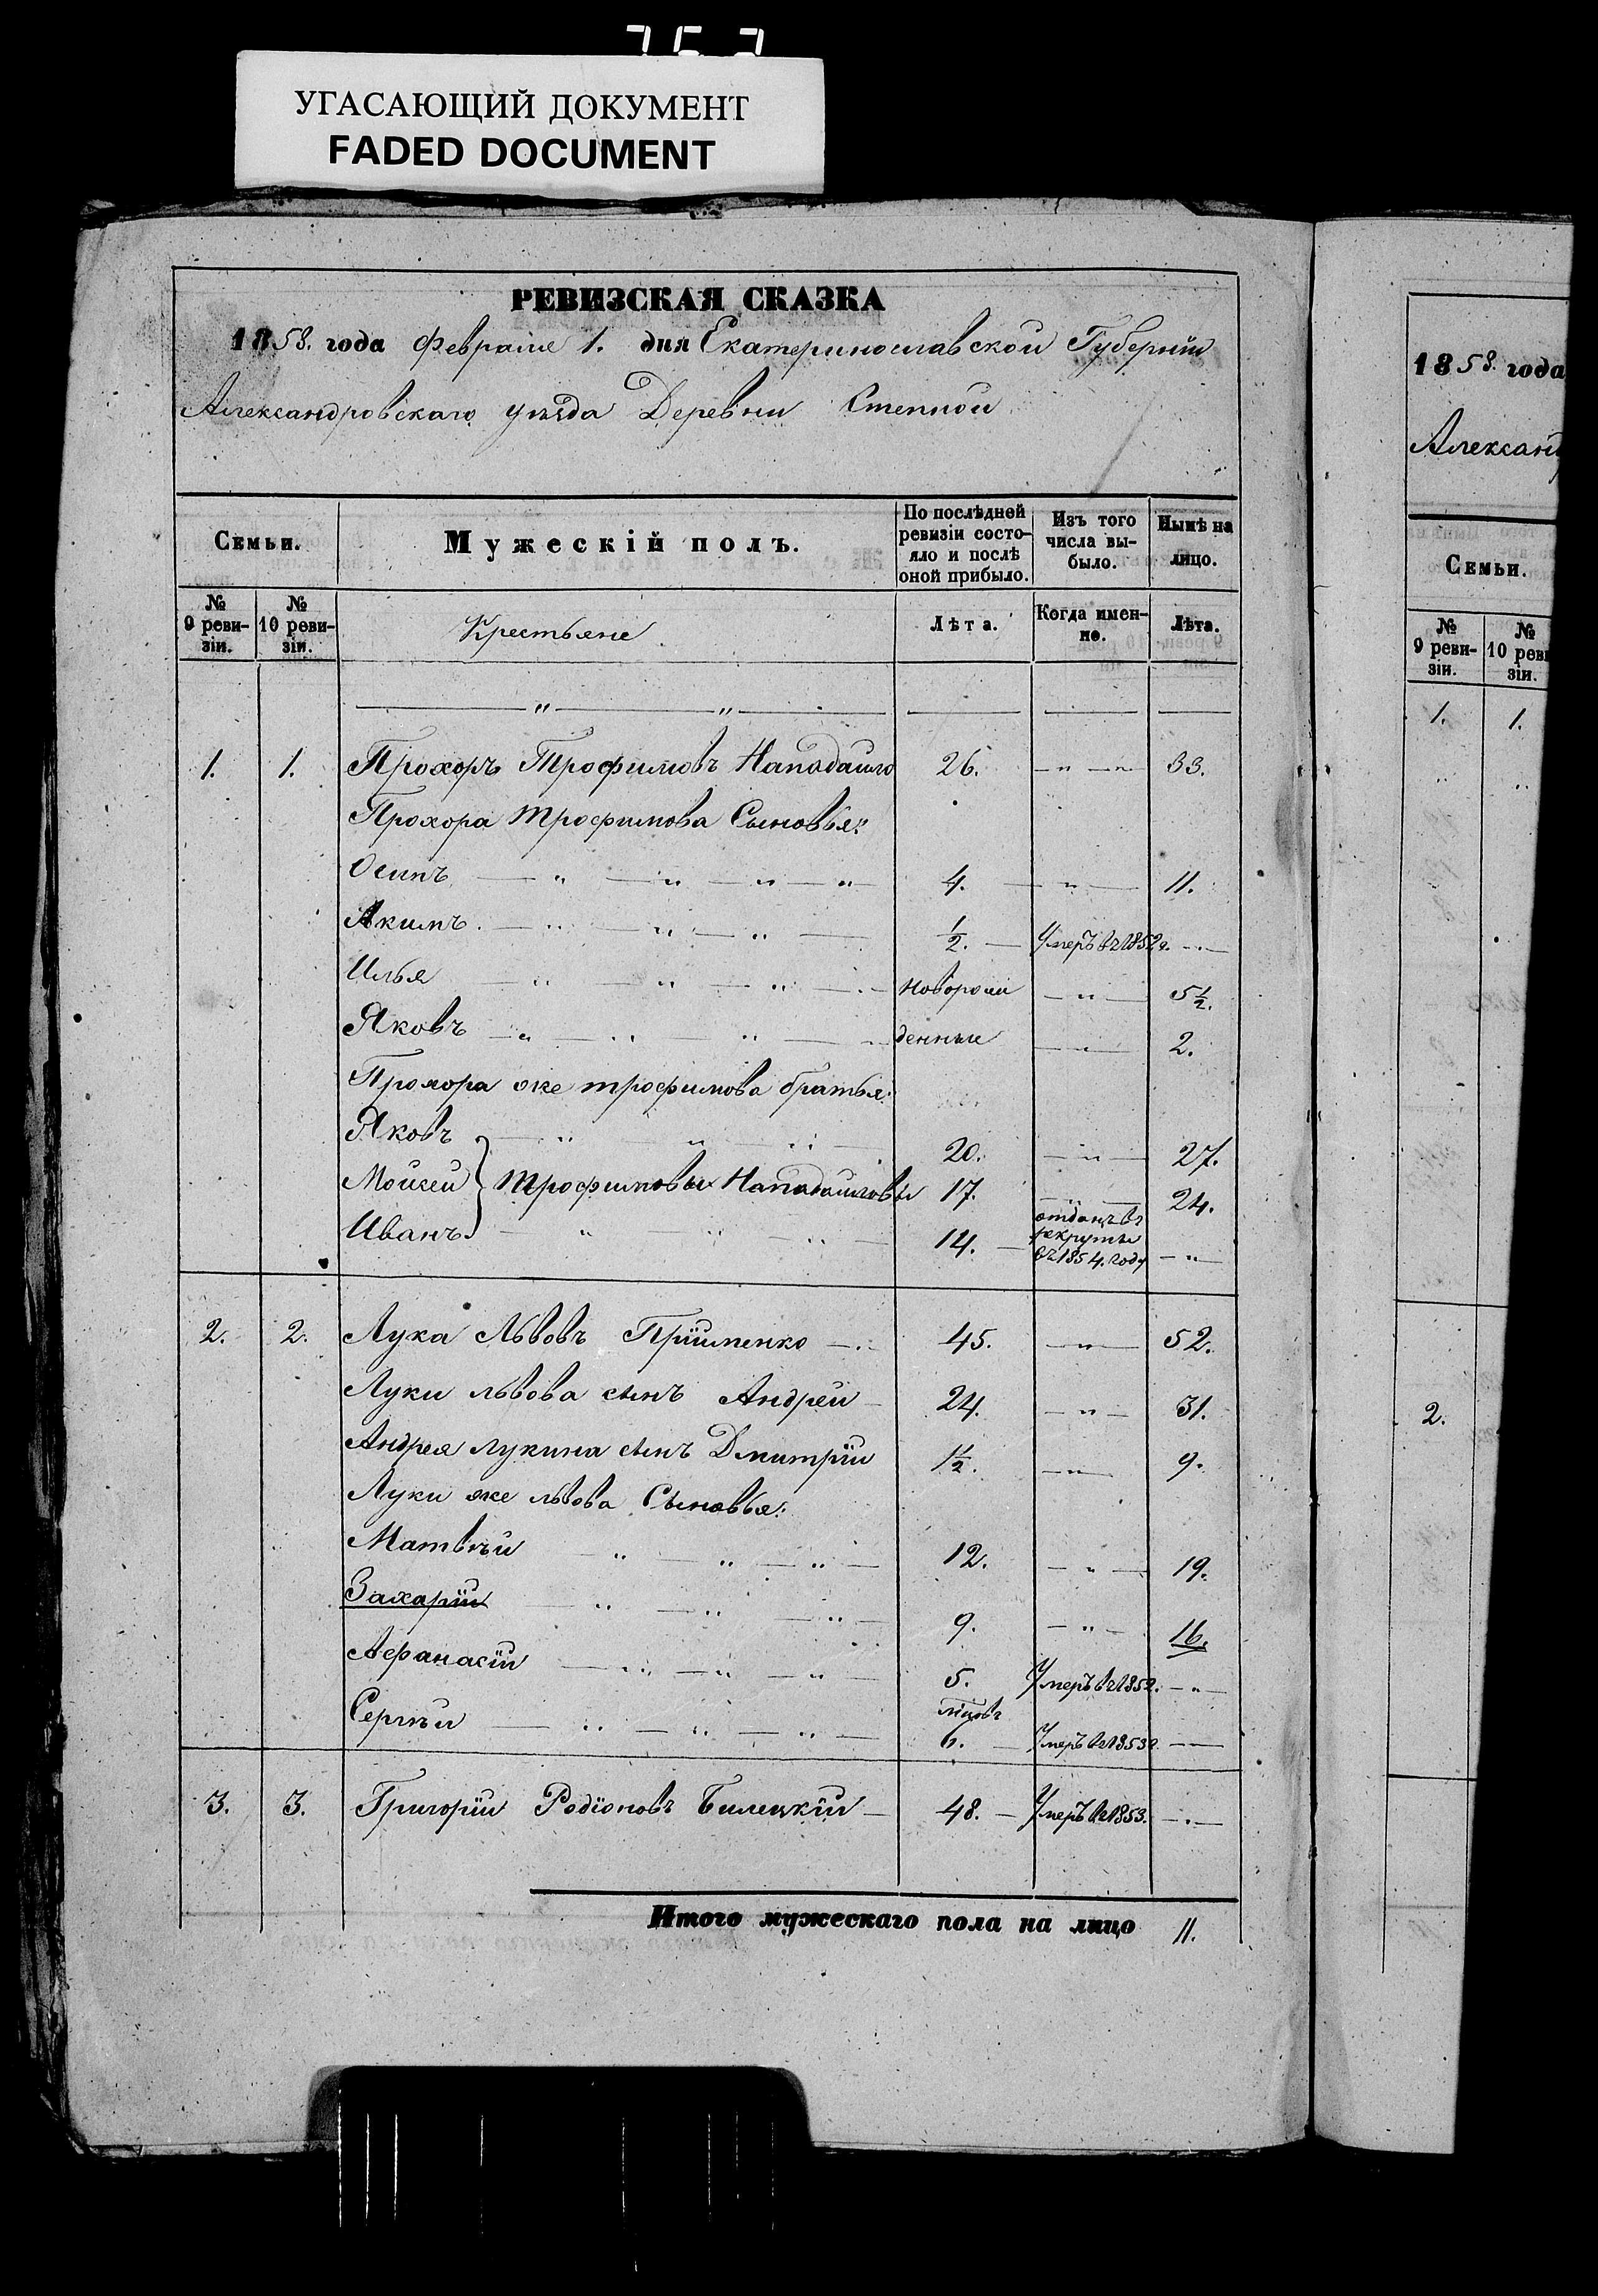 УГАСАЮЩИЙ ДОКУМЕНТ
FADED DOCUMENT
РЕВИЗСКАЯ СКАЗКА
1858. года Февраля 1. дня Екатеринославской Губерніи
Александровскаго уѣзда Деревни Степной
Семьи.
Мужескій полъ.
По послѣдней ревизіи состояло и послѣ оной прибыло.
Изъ того числа выбыло.
Нынѣ на лицо.
№ 9 ревизіи.
№ 10 ревизіи.
Крестьяне
Лѣта.
Когда именно.
Лѣта.
1. 1. Прохоръ Трофимовъ 26. 33.
Прохора Трофимова Сыновья:
Осипъ 4. 11.
Акимъ 1/2. Умеръ въ 1852 г.
Илья новорож 5 1/2.
Яковъ денные 2.
Прохора же трофимова братья:
Яковъ 20. 27.
Мойсей } Трофимовы 17. 24.
Иванъ 14. отданъ въ рекруты въ 1854. году
2. 2. Лука Львовъ 45. 52.
Луки львова сынъ Андрей 24. 31.
Андрея Лукина сынъ Дмитрій 1 1/2. 9.
Луки же львова Сыновья:
Матвѣй 12. 19.
Захарій 9. 16.
Афанасій 5. Умеръ въ 1852.
Сергѣй 6. Умеръ въ 1853 г.
3. 3. Григорій Родіоновъ Билецкій 48. Умеръ въ 1853.
Итого мужескаго пола на лицо 11.
1858. года
Александ
Семьи.
№ 9 ревизіи.
№ 10 реви зіи.
1. 1.
2.